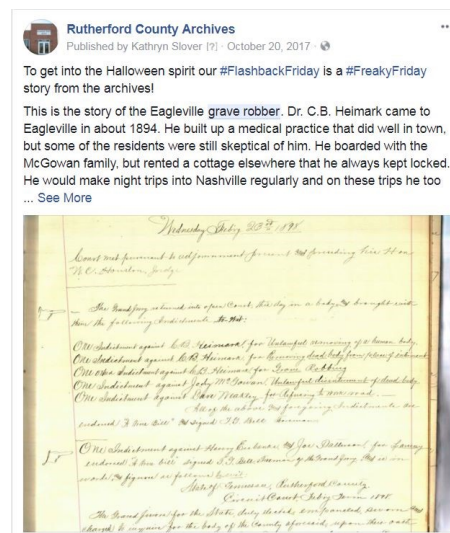 Rutherford County Archives
Published by Kathryn Slover [?] · October 20, 2017 ·
To get into the Halloween spirit our #FlashbackFriday is a #FreakyFriday
story from the archives!
This is the story of the Eagleville grave robber. Dr. C.B. Heimark came to
Eagleville in about 1894. He built up a medical practice that did well in town,
but some of the residents were still skeptical of him. He boarded with the
McGowan family, but rented a cottage elsewhere that he always kept locked.
He would make night trips into Nashville regularly and on these trips he too
... See More
Wednesday Feby 23rd 1898
Court met pursuant to adjournment present and presiding His Hon
Judge
The Grand Jury returned into open Court this day in a body and brought with
them the following Indictments to wit:
One Indictment against C.B. Heimark for Unlawful removing of a human body
One Indictment against C.B. Heimark for Removing dead body from place of interment
One Indictment against C.B. Heimark for Grave Robbing
One Indictment against Jody McGowan Unlawful disinterment of dead body
One Indictment against Dave for refusing to work road
All of the above and foregoing Indictments are
endorsed "A true Bill" and signed
One Indictment against Henry and Joe for Larceny
endorsed "A true Bill" signed of the Grand Jury
words and figures as follows to wit:
State of Tennessee, Rutherford County
Circuit Court, Feby Term 1898
The Grand Jurors for the State, duly elected, empaneled, sworn and
charged to inquire for the body of the County aforesaid, upon their oath